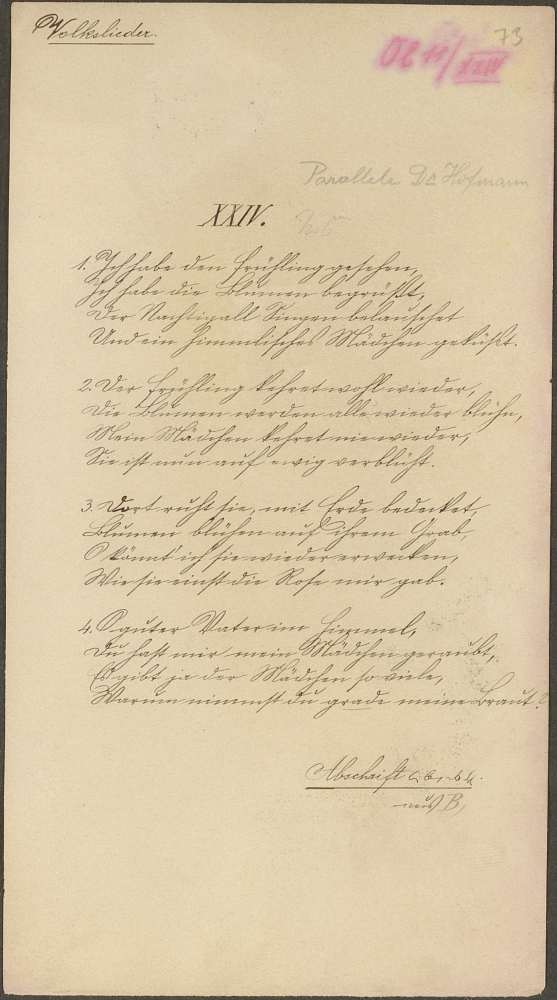 Volkslieder.
73
XXIV
Parallele Dr Hofmann
XXIV.
1. Ich habe den Frühling gesehen,
Ich habe die Blumen begrüßt,
Der Nachtigall Singen belauschet
Und ein himmlisches Mädchen geküßt.
2. Der Frühling kehret wohl wieder,
Die Blumen werden alle wieder blühn,
Mein Mädchen kehret nie wieder,
Sie ist nun auf ewig verblüht.
3. Dort ruht sie, mit Erde bedecket,
Blumen blühen auf ihrem Grab,
O könnt' ich sie wieder erwecken,
Wie sie einst die Rose mir gab.
4. O guter Vater im Himmel,
Du hast mir mein Mädchen geraubt,
Es gibt ja der Mädchen so viele,
Warum nimmst du grade meine Braut?
Abschrift
aus B,